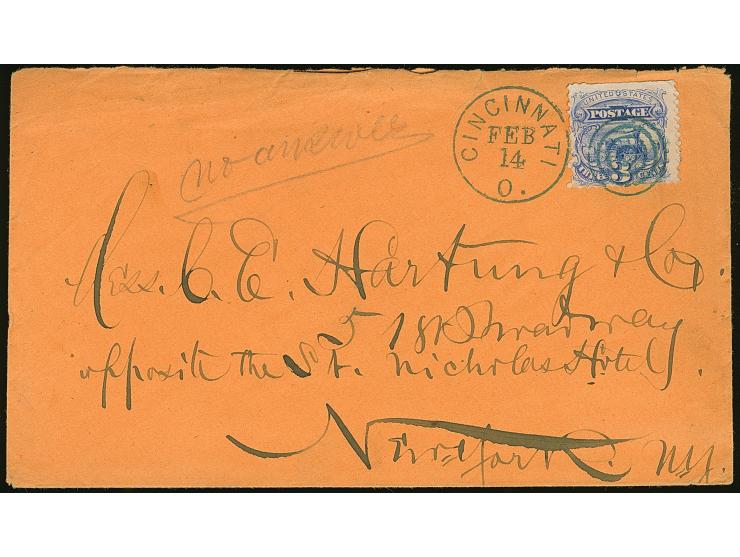 no answer
CINCINNATI
FEB
14
O.
UNITED STATES
POSTAGE
3
Mess. C. E. Hartung & Co.
518 Broadway
opposite the St. Nicholas Hotel.
New-York. NY.